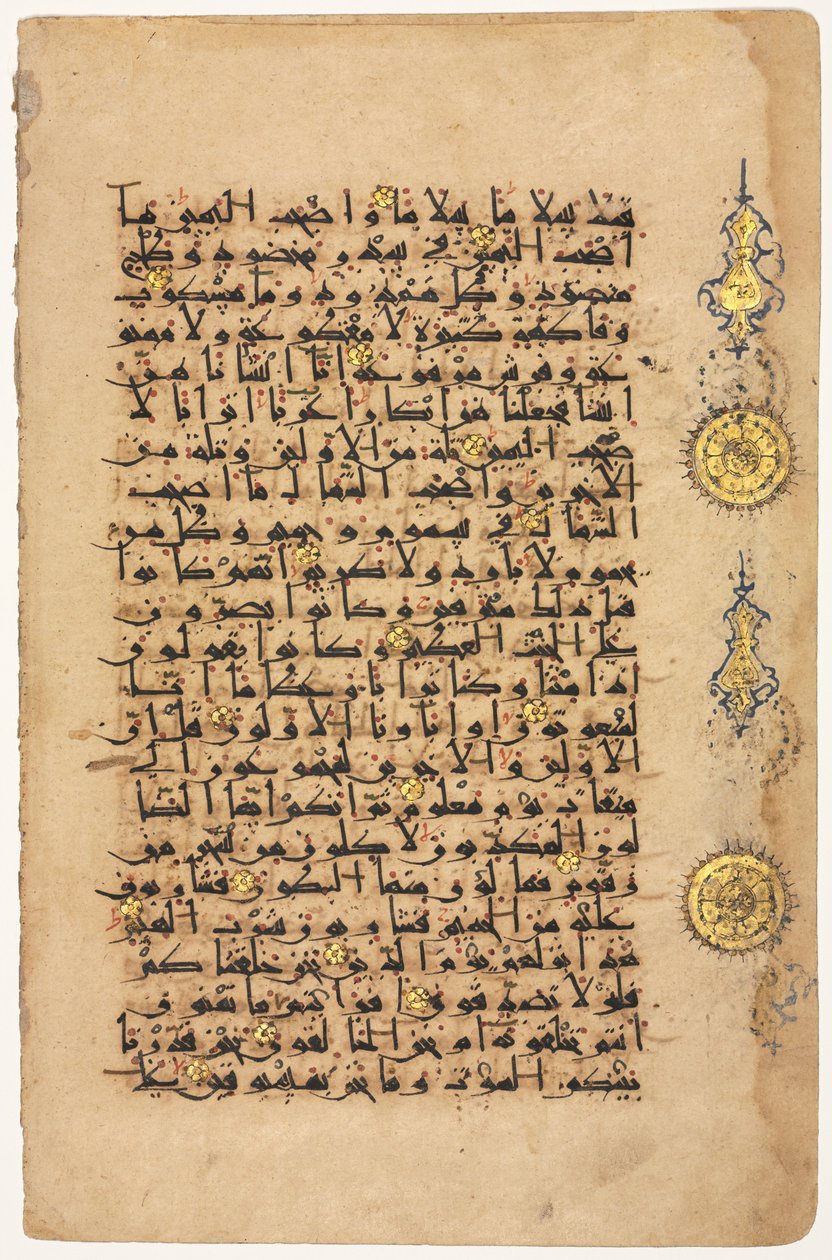 قيلا سلاما سلاما واصحب اليمين ما
اصحب اليمين في سدر مخضود وطلح
منضود وظل ممدود وما مسكوب
وفاكهة كثيرة لا مقطوعة ولا ممنو
عة وفرش مرفوعة انا انشانا هن
انشا فجعلنا هن ابكارا عربا اترابا لا
صحب اليمين ثلة من الاولين وثلة من
الاخرين واصحب الشمال ما اصحب
الشمال في سموم وحميم وظل من
يحموم لا بارد ولا كريم انهم كانوا
قبل ذلك مترفين وكانوا يصرون
على الحنث العظيم وكانوا يقولون
ائذا متنا وكنا ترابا وعظاما ائنا
لمبعوثون او اباونا الاولون قل ان
الاولين والاخرين لمجموعون الى
ميقات يوم معلوم ثم انكم ايها الضا
لون المكذبون لاكلون من شجر من
زقوم فمالون منها البطون فشاربون
عليه من الحميم فشاربون شرب الهيم
هذا نزلهم يوم الدين نحن خلقناكم
فلولا تصدقون افرايتم ما تمنون
انتم تخلقونه ام نحن الخالقون نحن قدرنا
بينكم الموت وما نحن بمسبوقين على